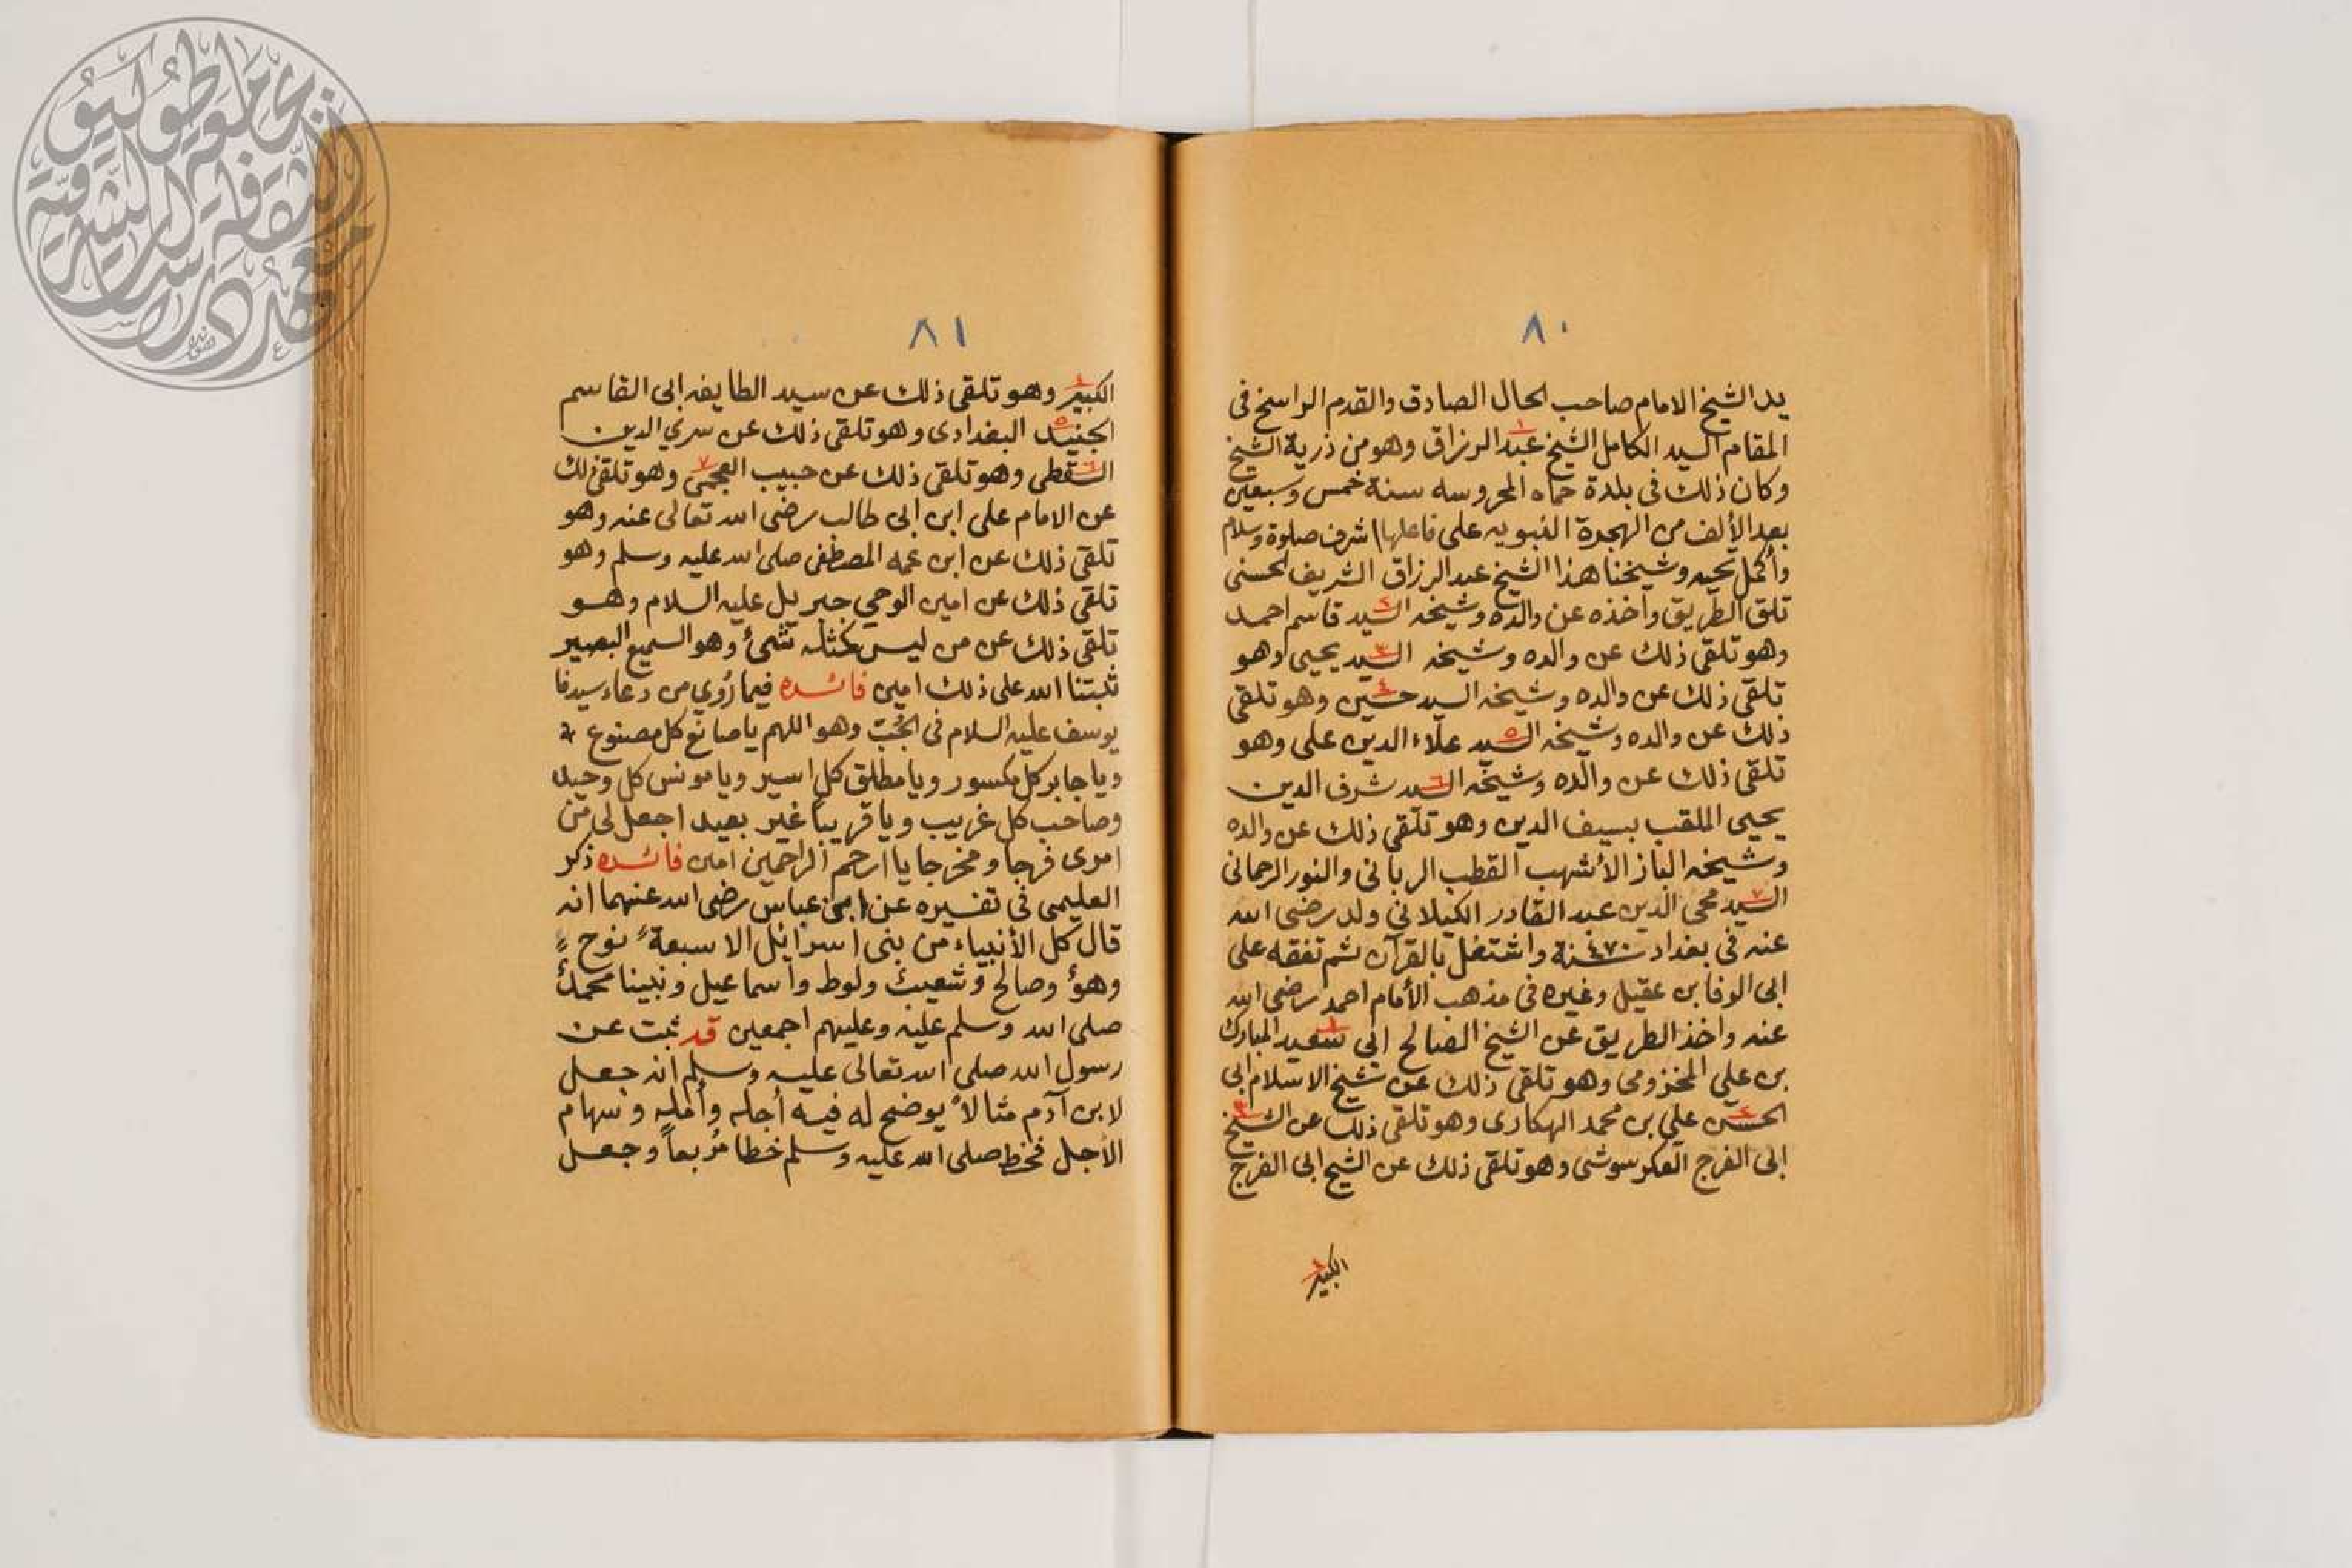 ٨٠
يد الشيخ الامام صاحب الحال الصادق والقدم الراسخ فى
المقام السيد الكامل الشيخ عبد الرزاق وهو من ذرية الشيخ
وكان ذلك فى بلدة حماه المحروسه سنة خمس وسبعين
بعد الألف من الهجرة النبويه على فاعلها اشرف صلوة وسلام
وأكمل تحيه وشيخنا هذا الشيخ عبد الرزاق الشريف الحسنى
تلق الطريق واخذه عن والده وشيخه السيد قاسم احمد
وهو تلقى ذلك عن والده وشيخه السيد يحيى وهو
تلقى ذلك عن والده وشيخه السيد حسين وهو تلقى
ذلك عن والده وشيخه السيد علاء الدين على وهو
تلقى ذلك عن والده وشيخه السيد شرف الدين
يحيى الملقب بسيف الدين وهو تلقى ذلك عن والده
وشيخه الباز الأشهب القطب الربانى والنور الرحمانى
السيد محى الدين عبد القادر الكيلانى ولد رضى الله
عنه فى بغداد سنة ٤٧٠ واشتغل بالقرآن ثم تفقه على
ابى الوفا بن عقيل وغيره فى مذهب الأمام احمد رضى الله
عنه واخذ الطريق عن الشيخ الصالح ابى سعيد المبارك
بن على المخزومى وهو تلقى ذلك عن شيخ الاسلام ابى
الحسن على بن محمد الهكارى وهو تلقى ذلك عن الشيخ
ابى الفرج العكرسوشى وهو تلقى ذلك عن الشيخ ابى الفرج
الكبير
٨١
الكبير وهو تلقى ذلك عن سيد الطايفه ابى القاسم
الجنيد البغدادى وهو تلقى ذلك عن سري الدين
السقطى وهو تلقى ذلك عن حبيب العجمى وهو تلقى ذلك
عن الامام على ابن ابى طالب رضى الله تعالى عنه وهو
تلقى ذلك عن ابن عمه المصطفى صلى الله عليه وسلم وهو
تلقى ذلك عن امين الوحي جبريل عليه السلام وهو
تلقى ذلك عن من ليس كمثله شىء وهو السميع البصير
ثبتنا الله على ذلك امين فائده فيما رُوي من دعاء سيدنا
يوسف عليه السلام فى الجُبّ وهو اللهم يا صانع كل مصنوع
ويا جابر كل مكسور ويا مطلق كل اسير ويا مونس كل وحيد
وصاحب كل غريب ويا قريبا غير بعيد اجعل لى من
امرى فرجا ومخرجا يا ارحم الراحمين امين فائده ذكر
العليمى فى تفسيره عن ابن عباس رضى الله عنهما انه
قال كل الأنبياء من بنى اسرائيل الا سبعة نوح
وهود وصالح وشعيب ولوط واسماعيل ونبينا محمد
صلى الله وسلم عليه وعليهم اجمعين قد ثبت عن
رسول الله صلى الله تعالى عليه وسلم انه جعل
لابن آدم مثالاً يوضح له فيه أجله وأمله وسهام
الأجل فخط صلى الله عليه وسلم خطا مُربعاً وجعل